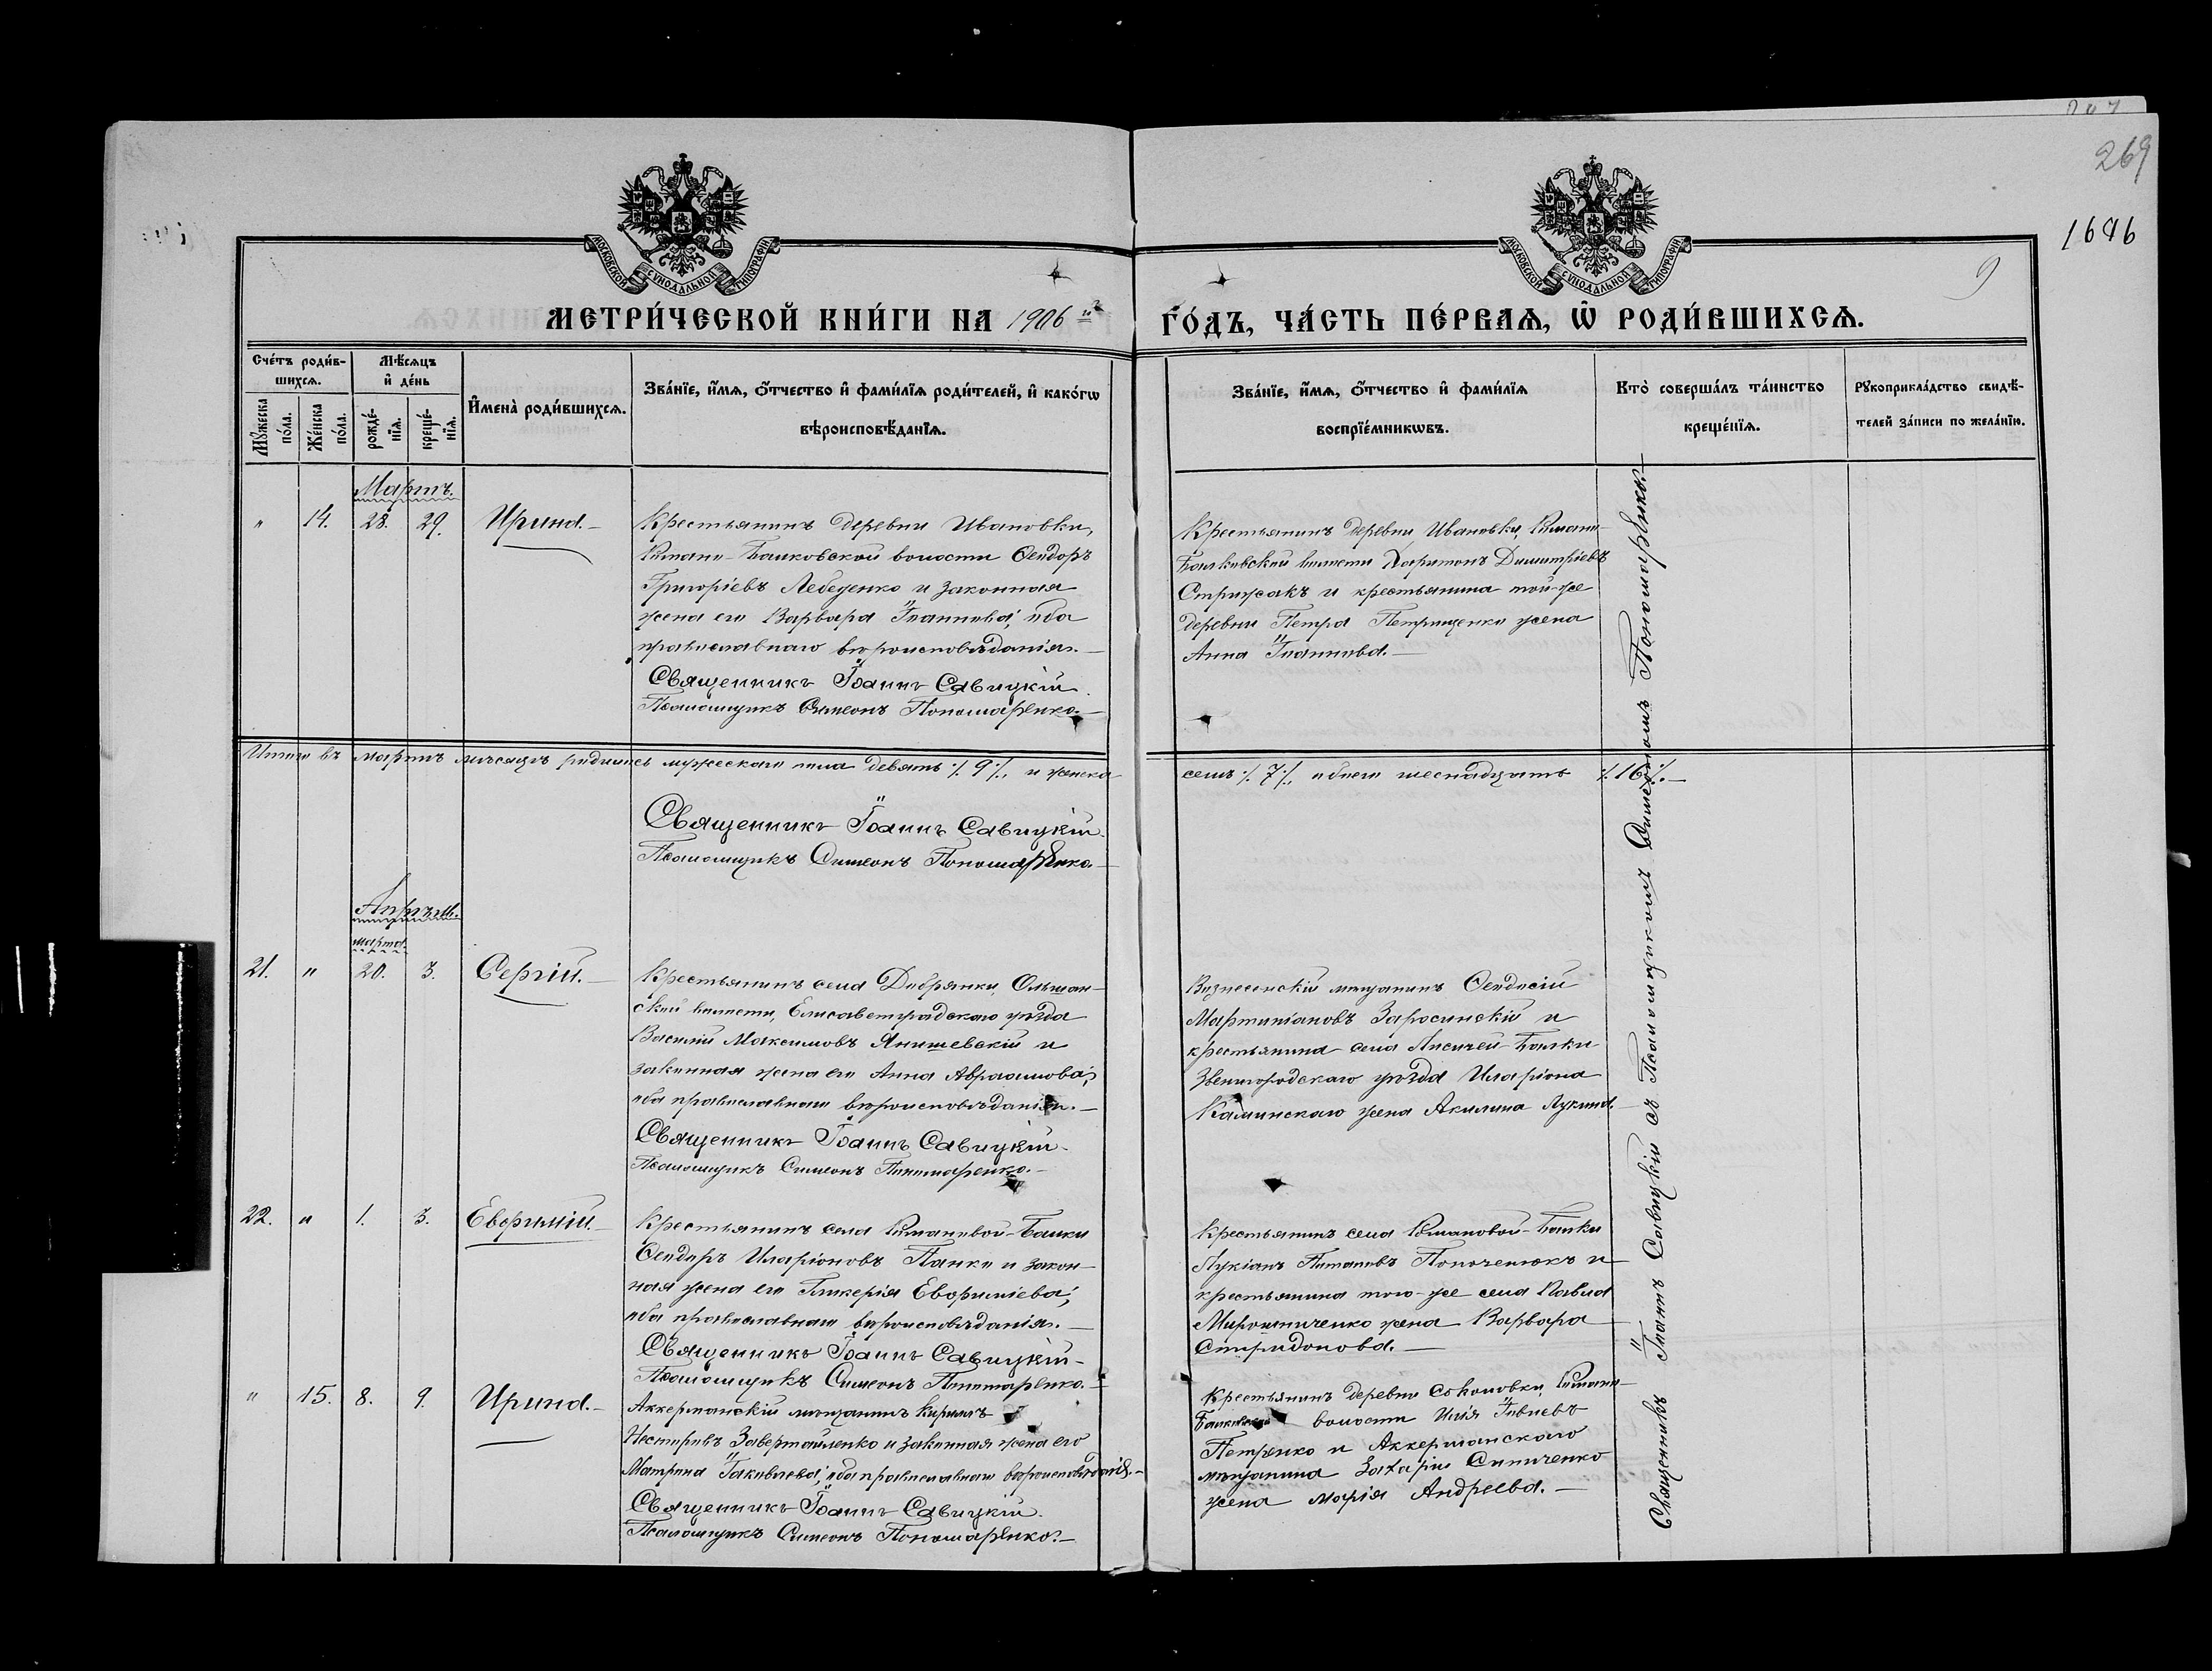 269
1686
9
МОСКОВСКОЙ СѴНОДАЛЬНОЙ ТИПОГРАФІИ
МОСКОВСКОЙ СѴНОДАЛЬНОЙ ТИПОГРАФІИ
МЕТРИ́ЧЕСКОЙ КНИ́ГИ НА 1906 й
ГО́ДЪ, ЧА́СТЬ ПЕ́РВАѦ, Ѡ РОДИ́ВШИХСѦ.
Сче́тъ роди́в-
шихсѧ.
Мꙋ́жеска
по́ла.
Же́нска
по́ла.
Мѣ́сѧцъ
и҆ де́нь
рожде́-
нїѧ.
креще́-
нїѧ.
И҆мена̀ роди́вшихсѧ.
Зва́нїе, и҆́мѧ, ѻ҆́тчество и҆ фами́лїѧ роди́телей, и҆ како́гѡ
вѣроисповѣ́данїѧ.
Зва́нїе, и҆́мѧ, ѻ҆́тчество и҆ фами́лїѧ
воспрїе́мникѡвъ.
Кто̀ соверша́лъ та́инство
креще́нїѧ.
Рꙋкоприкла́дство свидѣ́-
телей за́писи по жела́нїю.
Мартъ.
"
14.
28.
29.
Ирина.
Крестьянинъ деревни Ивановки,
Романо-Балковской волости Ѳеодоръ
Григоріевъ Лебеденко и законная
жена его Варвара Іоаннова; оба
православнаго вѣроисповѣданія.
Священникъ Іоаннъ Савицкій.
Псаломщикъ Симеонъ Пономаренко.
Крестьянинъ деревни Ивановки, Романо-
Балковской волости Харитонъ Димитріевъ
Стрижакъ и крестьянина той-же
деревни Петра Петрищенко жена
Анна Іоаннова.
Итого въ мартѣ мѣсяцѣ родилось мужескаго пола девять ∕. 9 ∕., и женска
семь ∕. 7 ∕., обоего шестнадцать ∕. 16 ∕.
Священникъ Іоаннъ Савицкій.
Псаломщикъ Симеонъ Пономаренко.
Апрѣль.
марта.
21.
"
20.
3.
Сергій.
Крестьянинъ села Добрянки, Ольшан-
ской волости, Елисаветградскаго уѣзда
Василій Максимовъ Янишевскій и
законная жена его Анна Авраамова;
оба православнаго вѣроисповѣданія.
Священникъ Іоаннъ Савицкій.
Псаломщикъ Симеонъ Пономаренко.
Вознесенскій мѣщанинъ Ѳеодосій
Мартиніановъ Заросинскій и
крестьянина села Лисичей-Балки
Звенигородскаго уѣзда Иларіона
Каминскаго жена Акилина Лукина.
22.
"
1.
3.
Евѳимій.
Крестьянинъ села Романовой-Балки
Ѳеодоръ Иларіоновъ Панко и закон-
ная жена его Гликерія Евѳиміева;
оба православнаго вѣроисповѣданія.
Священникъ Іоаннъ Савицкій.
Псаломщикъ Симеонъ Пономаренко.
Крестьянинъ села Романовой-Балки
Лукіанъ Потаповъ Попоченюкъ и
крестьянина того-же села Павла
Мирошниченко жена Варвара
Спиридонова.
"
15.
8.
9.
Ирина.
Аккерманскій мѣщанинъ Кириллъ
Несторовъ Завертайленко и законная жена его
Матрона Іаковлева; оба православнаго вѣроисповѣданія.
Священникъ Іоаннъ Савицкій.
Псаломщикъ Симеонъ Пономаренко.
Крестьянинъ деревни Соколовки, Романо-
Балковской волости Илія Іовлевъ
Петренко и Аккерманскаго
мѣщанина Захарія Синиченко
жена Марія Андреева.
Священникъ Іоаннъ Савицкій съ Псаломщикомъ Симеономъ Пономаренко.